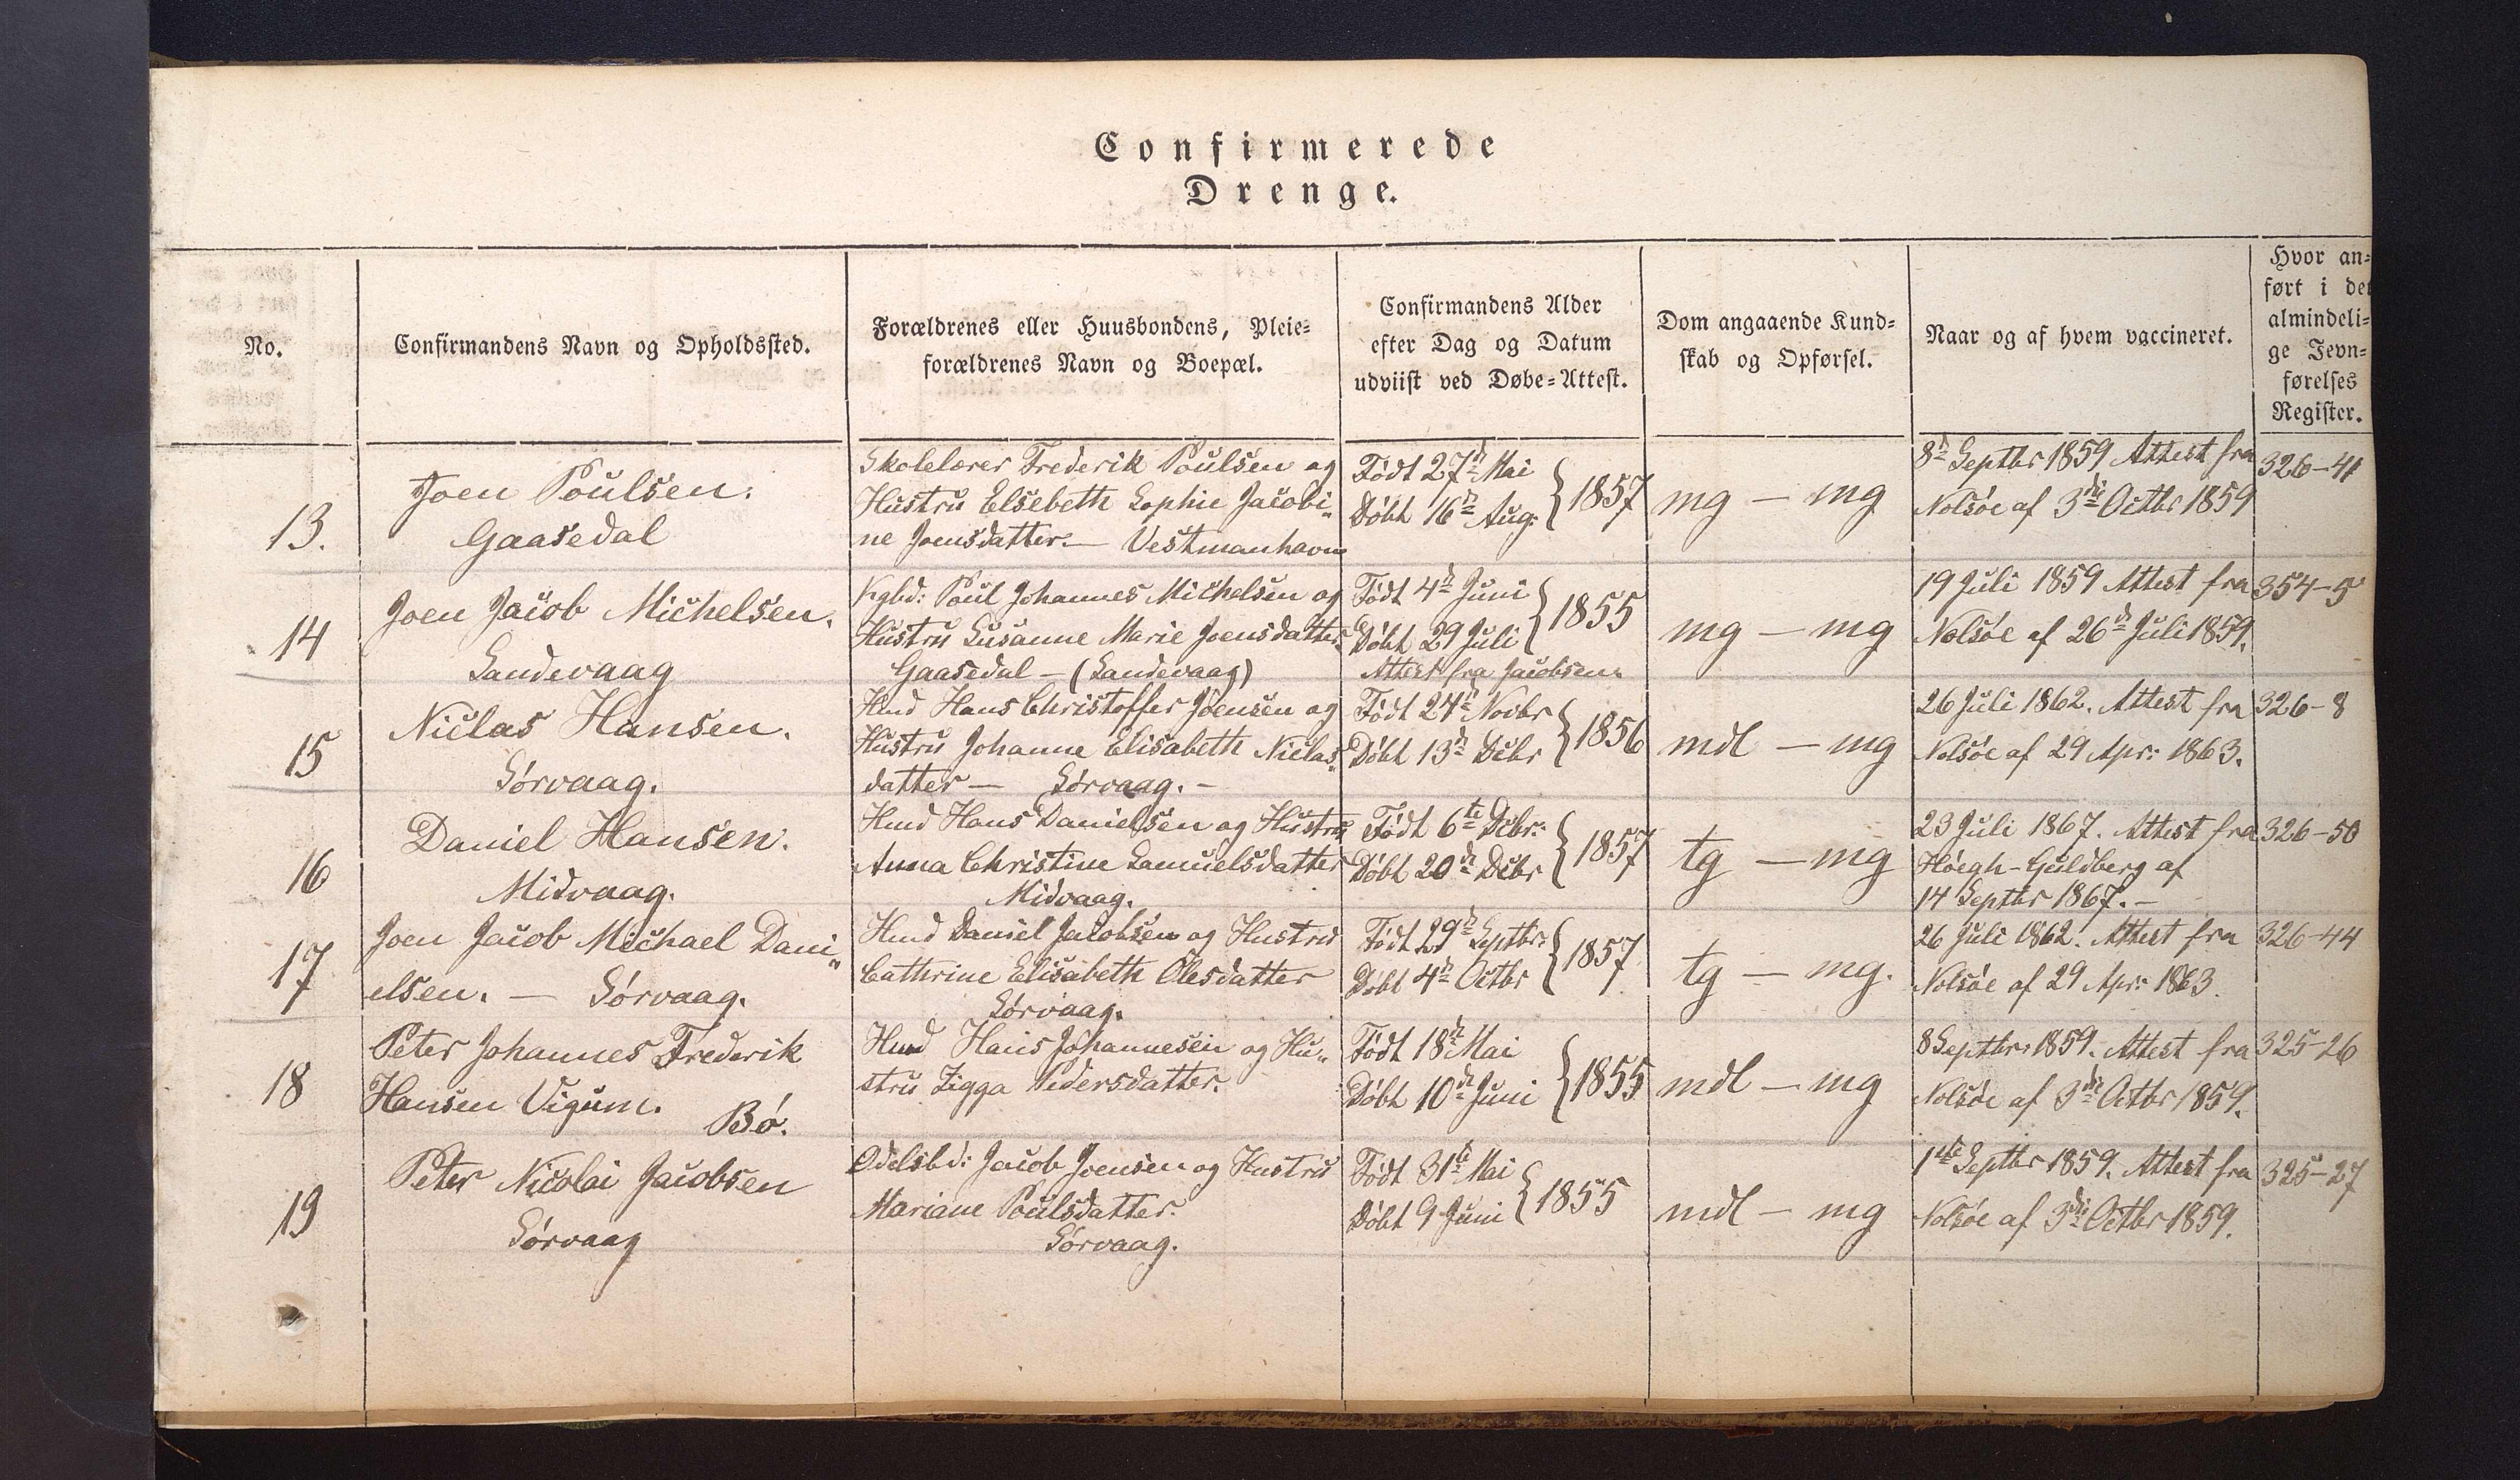 Confirmerede
Drenge.
No.
Confirmandens Navn og Opholdssted.
Forældrenes eller Huusbondens, Pleie=
forældrenes Navn og Boepæl.
Confirmandens Alder
efter Dag og Datum
udviist ved Døbe=Attest.
Dom angaaende Kund=
skab og Opførsel.
Naar og af hvem vaccineret.
Hvor an=
ført i det
almindeli=
ge Jevn=
førelses
Register.
13.
Joen Poulsen.
Gaasedal
Skolelærer Frederik Poulsen og
Hustru Elsebeth Sophie Jacobi„
ne Joensdatter. — Vestmanhavn
Født 27de Mai
Døbt 16de Aug: } 1857
mg — mg
8de Septbr 1859 Attest fra
Nolsøe af 3die Octbr 1859
326-41
14
Joen Jacob Michelsen.
Sandevaag
Kgbd: Poul Johannes Michelsen og
Hustru Susanne Marie Joensdatter.
Gaasedal — (Sandevaag)
Født 4de Juni
Døbt 29 Juli } 1855
Attest fra Jacobsen.
mg — mg
19 Juli 1859 Attest fra
Nolsøe af 26de Juli 1859.
354-5
15
Niclas Hansen.
Sørvaag.
Hmd Hans Christoffer Joensen og
Hustru Johanne Elisabeth Niclas„
datter — Sørvaag. —
Født 24de Novbr
Døbt 13de Decbr } 1856
mdl — mg
26 Juli 1862. Attest fra
Nolsøe af 29 Apr: 1863.
326-8
16
Daniel Hansen.
Midvaag.
Hmd Hans Danielsen og Hustru
Anna Christine Samuelsdatter
Midvaag.
Født 6te Decbr:
Døbt 20de Decbr } 1857
tg — mg
23 Juli 1867. Attest fra
Høegh-Guldberg af
14 Septbr 1867. —
326-50
17
Joen Jacob Michael Dani„
elsen. — Sørvaag.
Hmd Daniel Jacobsen og Hustru
Cathrine Elisabeth Olesdatter
Sørvaag.
Født 29de Septbr:
Døbt 4de Octbr } 1857
tg — mg.
26 Juli 1862. Attest fra
Nolsøe af 29 Apr: 1863.
326-44
18
Peter Johannes Frederik
Hansen Vigum. Bø.
Hmd Hans Johannesen og Hu„
stru Zigga Pedersdatter.
Født 18de Mai
Døbt 10de Juni } 1855
mdl — mg
8 Septbr: 1859. Attest fra
Nolsøe af 3die Octbr 1859.
325-26
19
Peter Nicolai Jacobsen
Sørvaag
Odelsbd: Jacob Joensen og Hustru
Mariane Poulsdatter.
Sørvaag.
Født 31te Mai
Døbt 9 Juni } 1855
mdl — mg
1ste Septbr 1859. Attest fra
Nolsøe af 3die Octbr 1859.
325-27